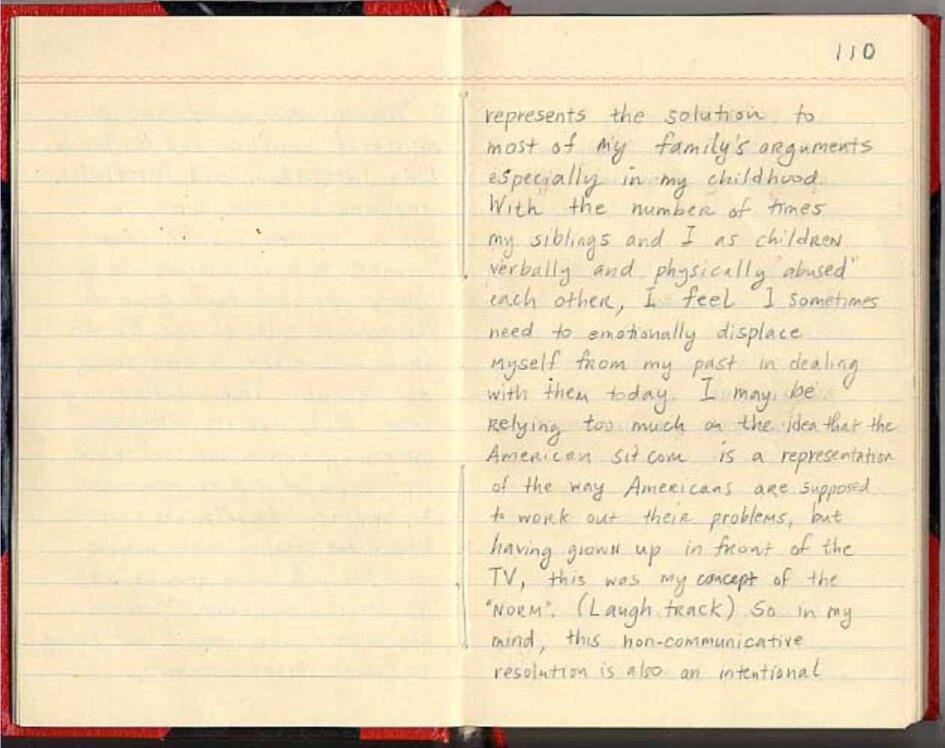 110
represents the solution to
most of my family's arguments
especially in my childhood.
With the number of times
my siblings and I as children
verbally and physically "abused"
each other, I feel I sometimes
need to emotionally displace
myself from my past in dealing
with them today. I may be
relying too much on the idea that the
American sitcom is a representation
of the way Americans are supposed
to work out their problems, but
having grown up in front of the
TV, this was my concept of the
"NORM". (Laugh track) So in my
mind, this non-communicative
resolution is also an intentional